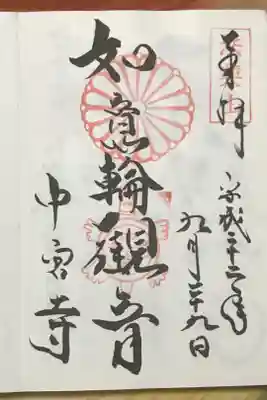 奉拝
平成二十二年
九月二十九日
如意輪観音
中宮寺